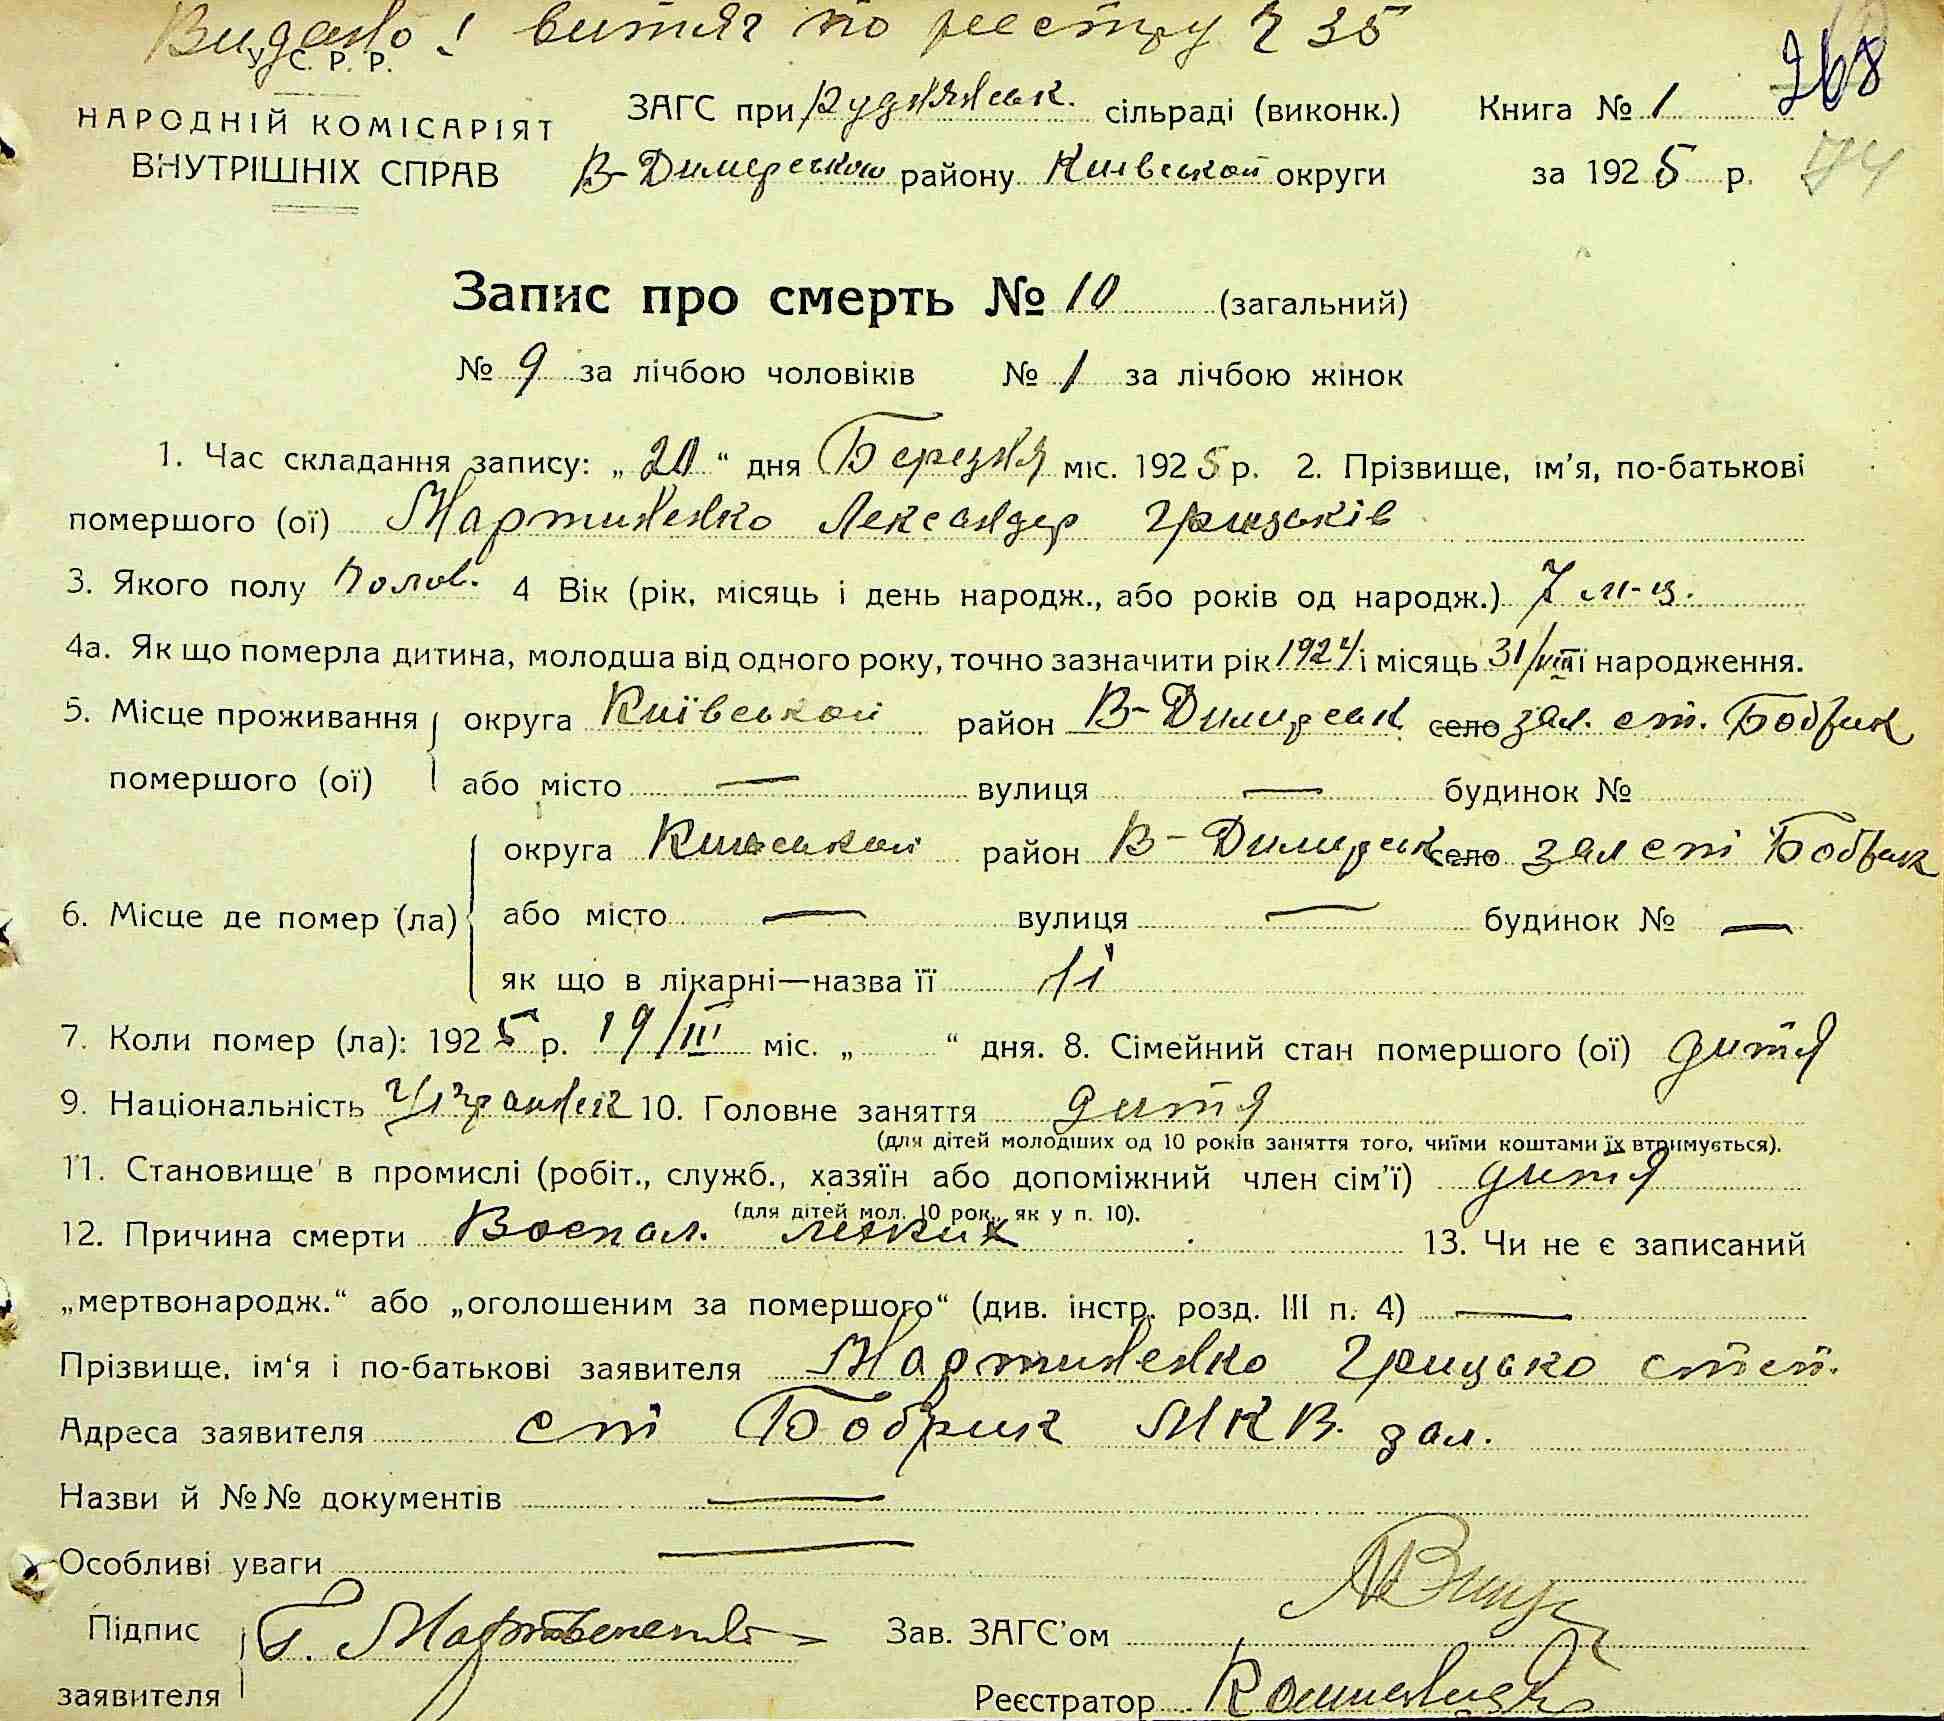 Видано! витяг по реєстру Ч 35
У. С. Р. Р.
268
НАРОДНІЙ КОМІСАРІЯТ
ВНУТРІШНІХ СПРАВ
ЗАГС при Руднянськ. сільраді (виконк.) Книга № 1
В-Димерського району Київської округи за 1925 р.
74
Запис про смерть № 10 (загальний)
№ 9 за лічбою чоловіків № 1 за лічбою жінок
1. Час складання запису: „20“ дня Березня міс. 1925 р. 2. Прізвище, ім’я, по-батькові
помершого (ої) Мартиненко Лександер Грицьків
3. Якого полу Чолов. 4 Вік (рік, місяць і день народж., або років од народж.) 7 м-ц.
4а. Як що померла дитина, молодша від одного року, точно зазначити рік 1924 і місяць 31/VIII її народження.
5. Місце проживання помершого (ої) округа Київської район В-Димирськ село зал. ст. Бобрик
або місто — вулиця — будинок №
6. Місце де помер (ла) округа Київської район В-Димирськ село зал ст Бобрик
або місто — вулиця — будинок № —
як що в лікарні—назва її
7. Коли помер (ла): 1925 р. 19/III міс. „ “ дня. 8. Сімейний стан помершого (ої) дитя
9. Національність Українец 10. Головне заняття дитя
(для дітей молодших од 10 років заняття того, чиїми коштами їх втримується).
11. Становище в промислі (робіт., служб., хазяїн або допоміжний член сім’ї) дитя
(для дітей мол. 10 рок., як у п. 10).
12. Причина смерти Воспал. легких 13. Чи не є записаний
„мертвонародж.“ або „оголошеним за помершого“ (див. інстр. розд. III п. 4) —
Прізвище, ім‘я і по-батькові заявителя Мартиненко Грицько степ.
Адреса заявителя ст Бобрик МКВ. зал.
Назви й №№ документів —
Особливі уваги —
Підпис заявителя Г. Мартиненко
Зав. ЗАГС’ом
Реєстратор